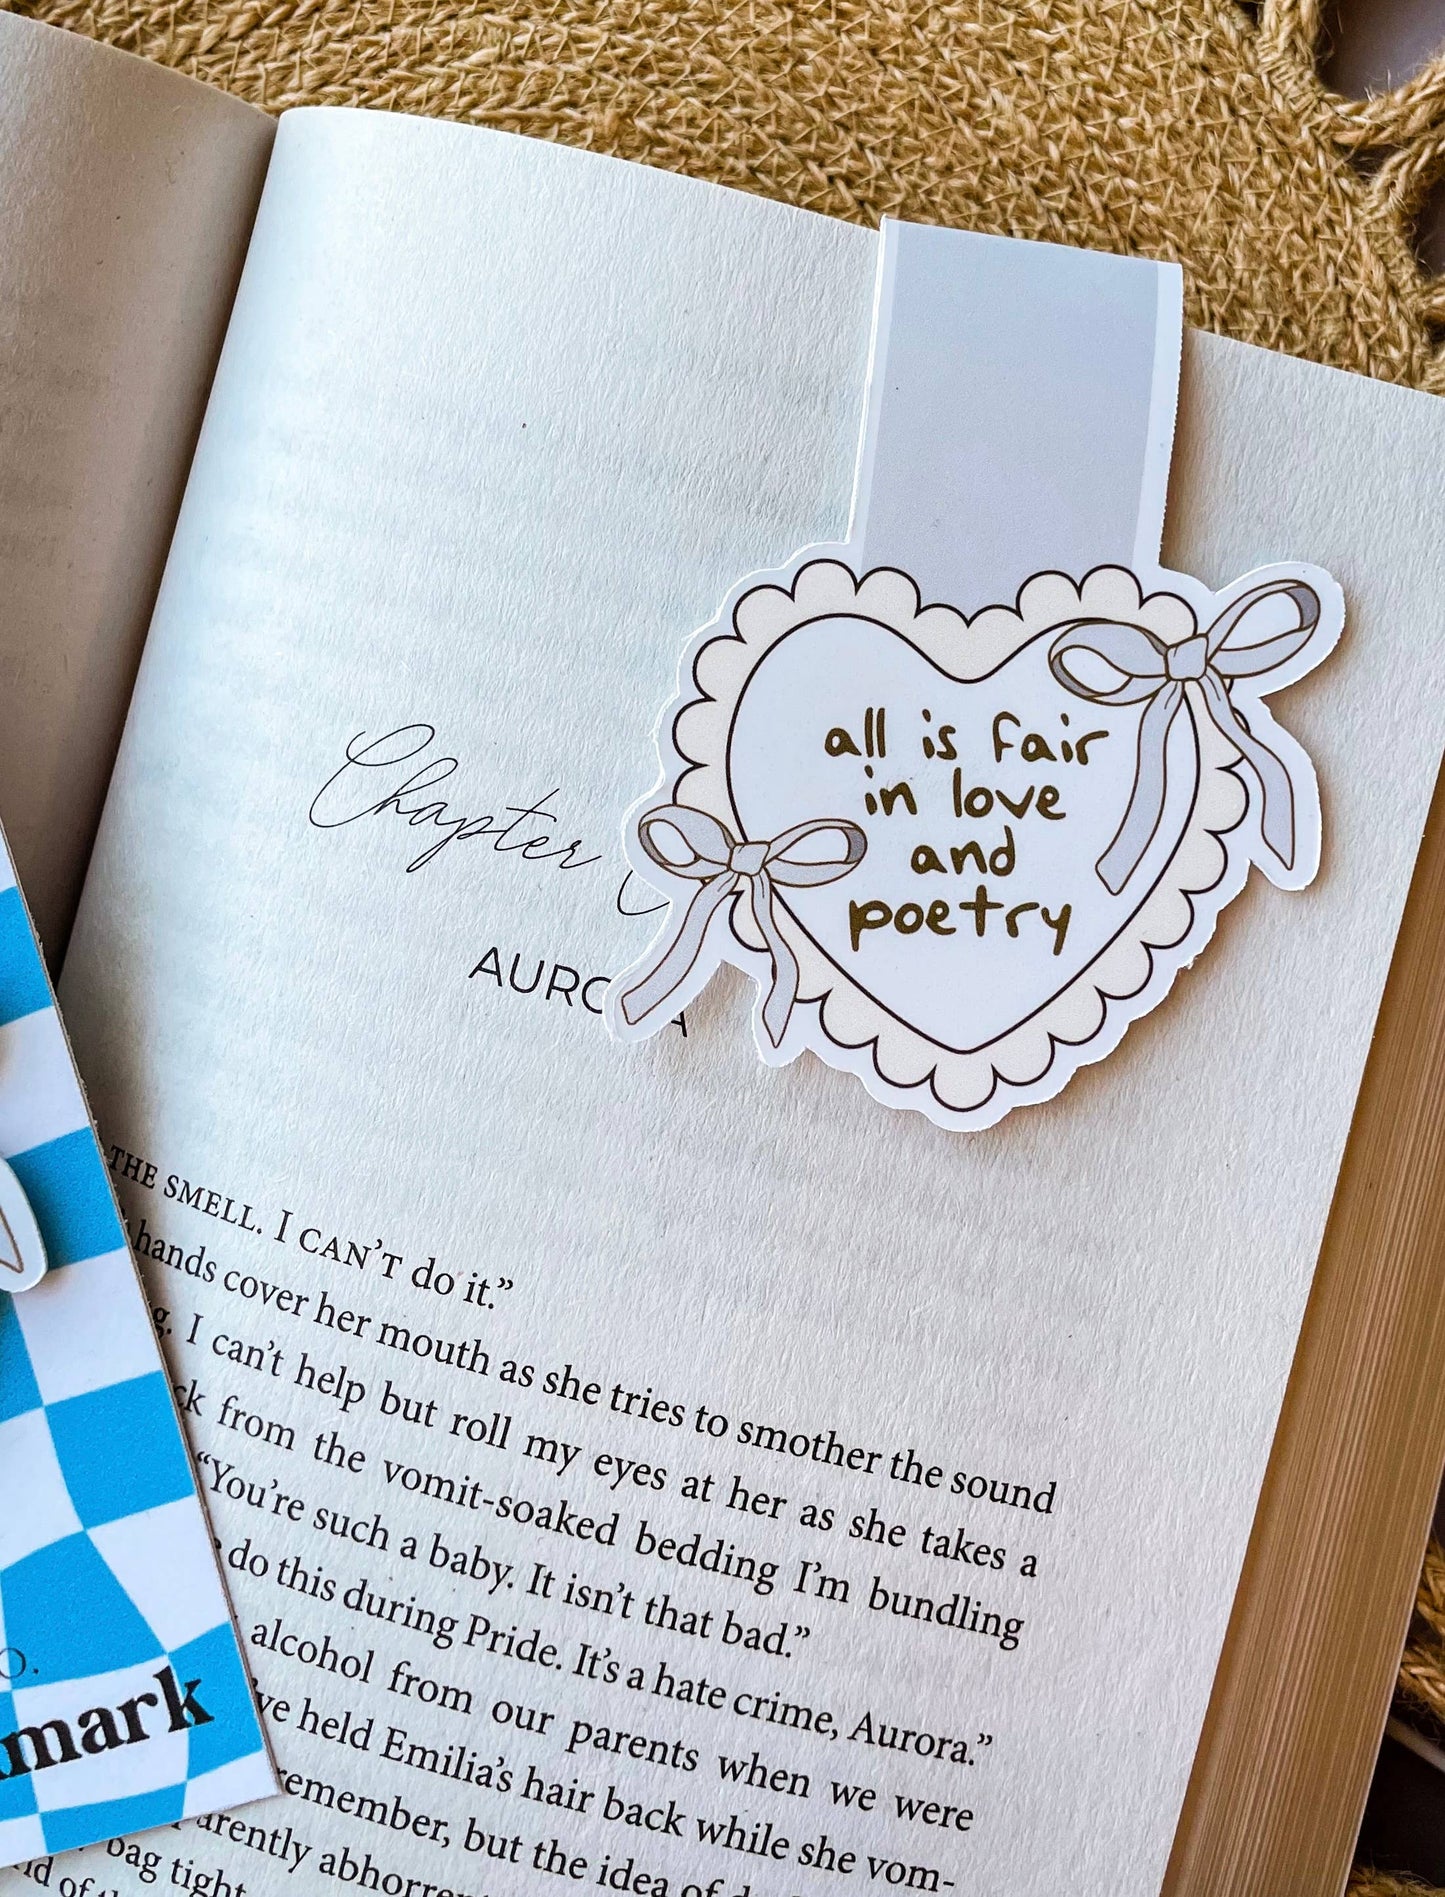 all is fair
in love
and
poetry
Chapter
AURORA
THE SMELL. I CAN'T do it.”
hands cover her mouth as she tries to smother the sound
I can't help but roll my eyes at her as she takes a
from the vomit-soaked bedding I'm bundling
“You're such a baby. It isn't that bad.”
do this during Pride. It's a hate crime, Aurora.”
alcohol from our parents when we were
've held Emilia's hair back while she vom-
remember, but the idea of
bag tight
mark